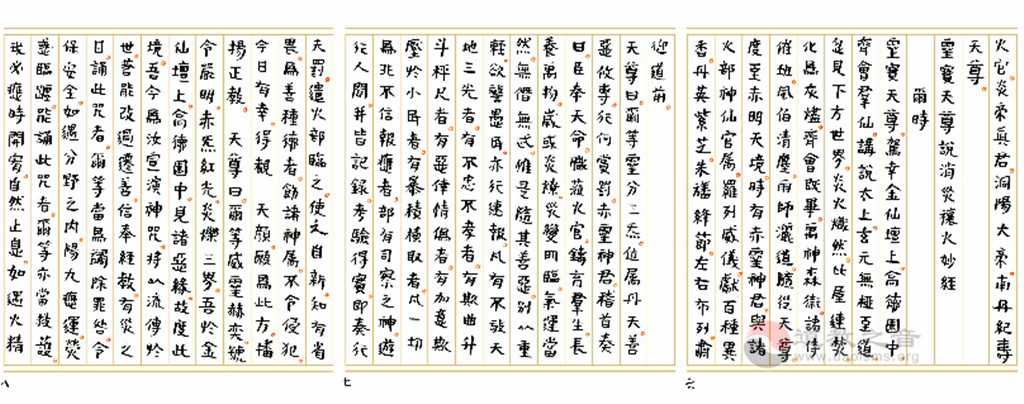 火官炎帝真君洞陽大帝南丹紀壽
天尊
靈寶天尊說消災禳火妙經
爾時
靈寶天尊駕幸金仙壇上高德園中
齊會群仙講說太上玄元無極至道
是見下方世界炎火熾然比屋連焚
化為灰燼齊會既畢萬神森衛諸侍
催班風伯清塵雨師灑道隨從天尊
度至赤明天境時有赤靈神君與諸
火部神仙官屬羅列威儀獻百種異
香丹英紫芝朱旛絳節左右布列肅
六
迎道前
天尊曰爾等靈分三炁位屬丹天善
惡攸專行何賞罰赤靈神君稽首奏
曰臣奉天命職蒞火官鑄育群生長
養萬物歲或炎燎災變間臨氣運當
然無僭無忒惟是隨其善惡別以重
輕欲警愚民亦行速報凡有不敬天
地三光者有不忠不孝者有欺曲升
斗秤尺者有惡倖情偽者有加意欺
壓於小民者有暴積橫取者凡一切
為非不信報應者部有司察之神遊
行人間并皆記錄考驗得實即奏行
七
天罰遣火部臨之使之自新知有省
畏為善種德者勑諸神屬不令侵犯
今日有幸得覩 天顏願為此方播
揚正教 天尊曰爾等威靈赫奕號
令嚴明赤炁紅光炎爍三界吾於金
仙壇上高德園中見諸惡緣故度此
境吾今為汝宣演神咒將以流傳於
世若能改過遷善信奉經教有災之
日誦此咒者爾等當為蠲除罪咎令
保安全如遇分野之內陽九應運熒
惑臨躔能誦此咒者爾等亦當救護
必應時開宥自然止息如遇火精
八
道教之音
www.daoisms.org